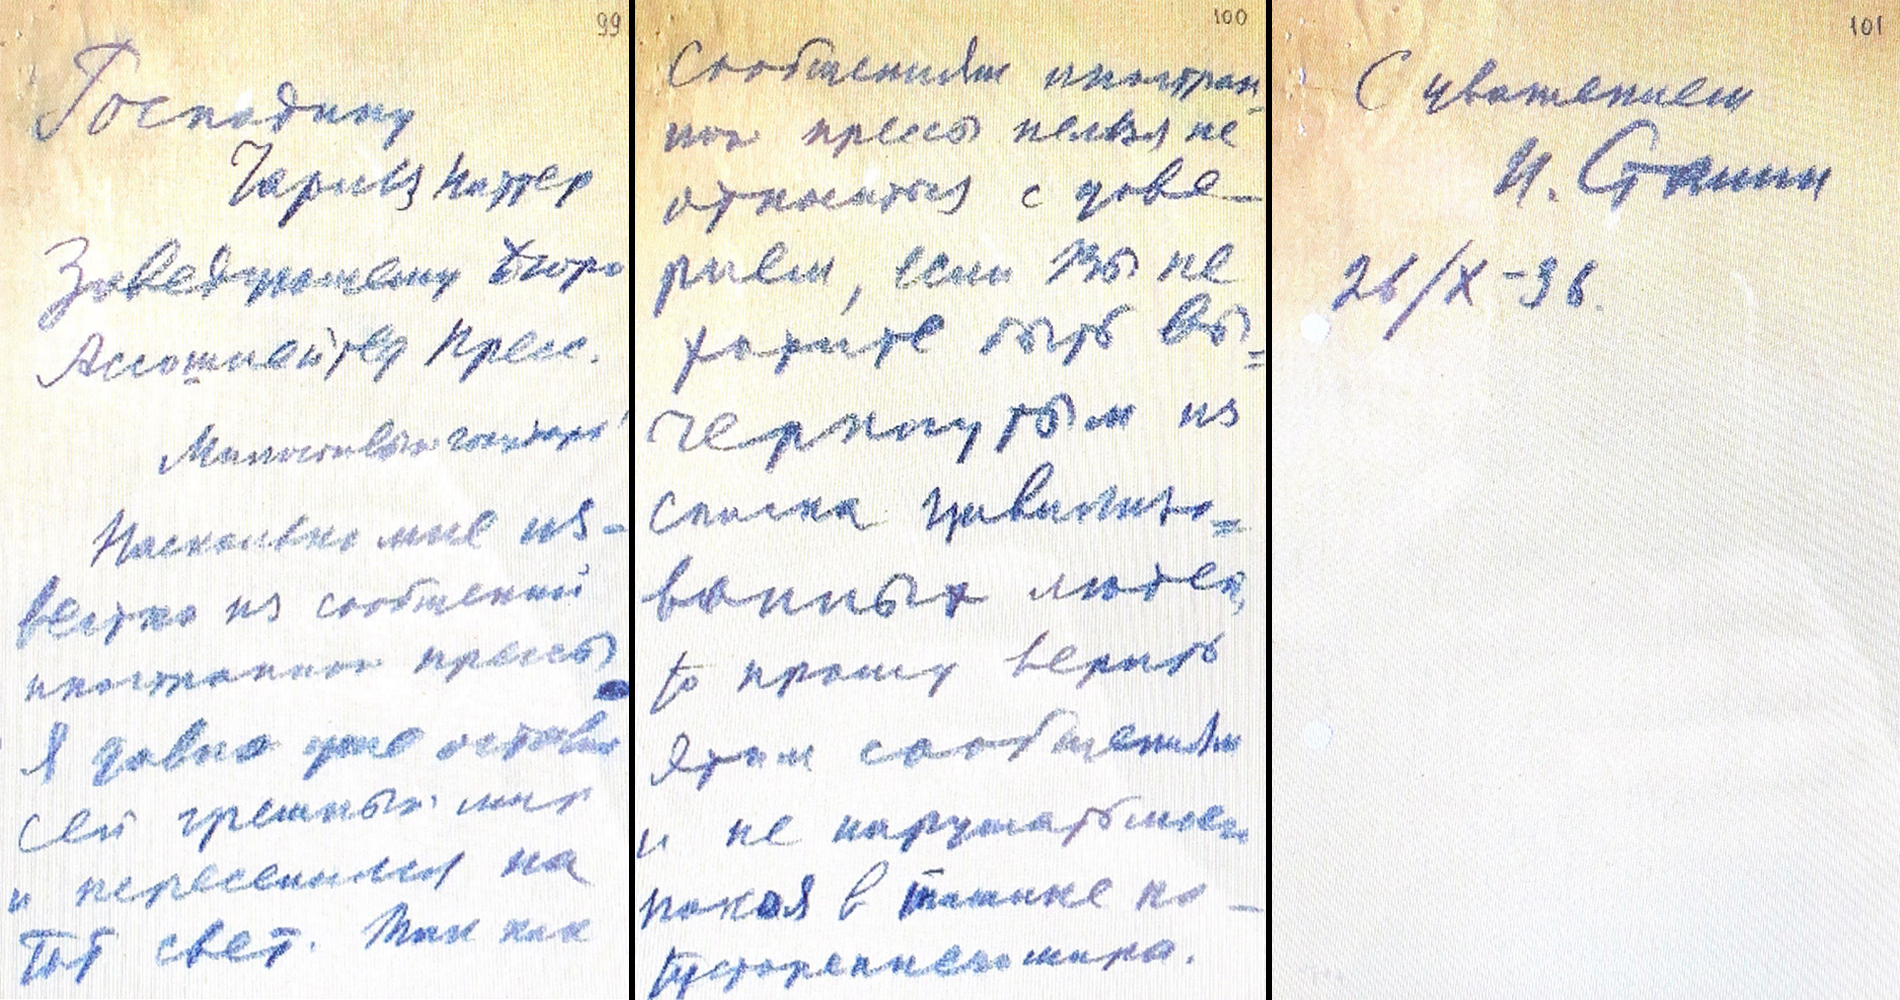 99
Господину
Чарльз Наттер
Заведующему Бюро
Ассошиейтед Пресс.
Милостивый государь!
Насколько мне из-
вестно из сообщений
иностранной прессы
я давно уже оставил
сей грешный мир
и переселился на
тот свет. Так как
100
сообщениям иностран-
ной прессы нельзя не
относиться с дове-
рием, если Вы не
хотите быть вы=
черкнутым из
списка цивилизо=
ванных людей,
то прошу верить
этим сообщениям
и не нарушать моего
покоя в тишине по-
тустороннего мира.
101
С уважением
И. Сталин
26/X-36.